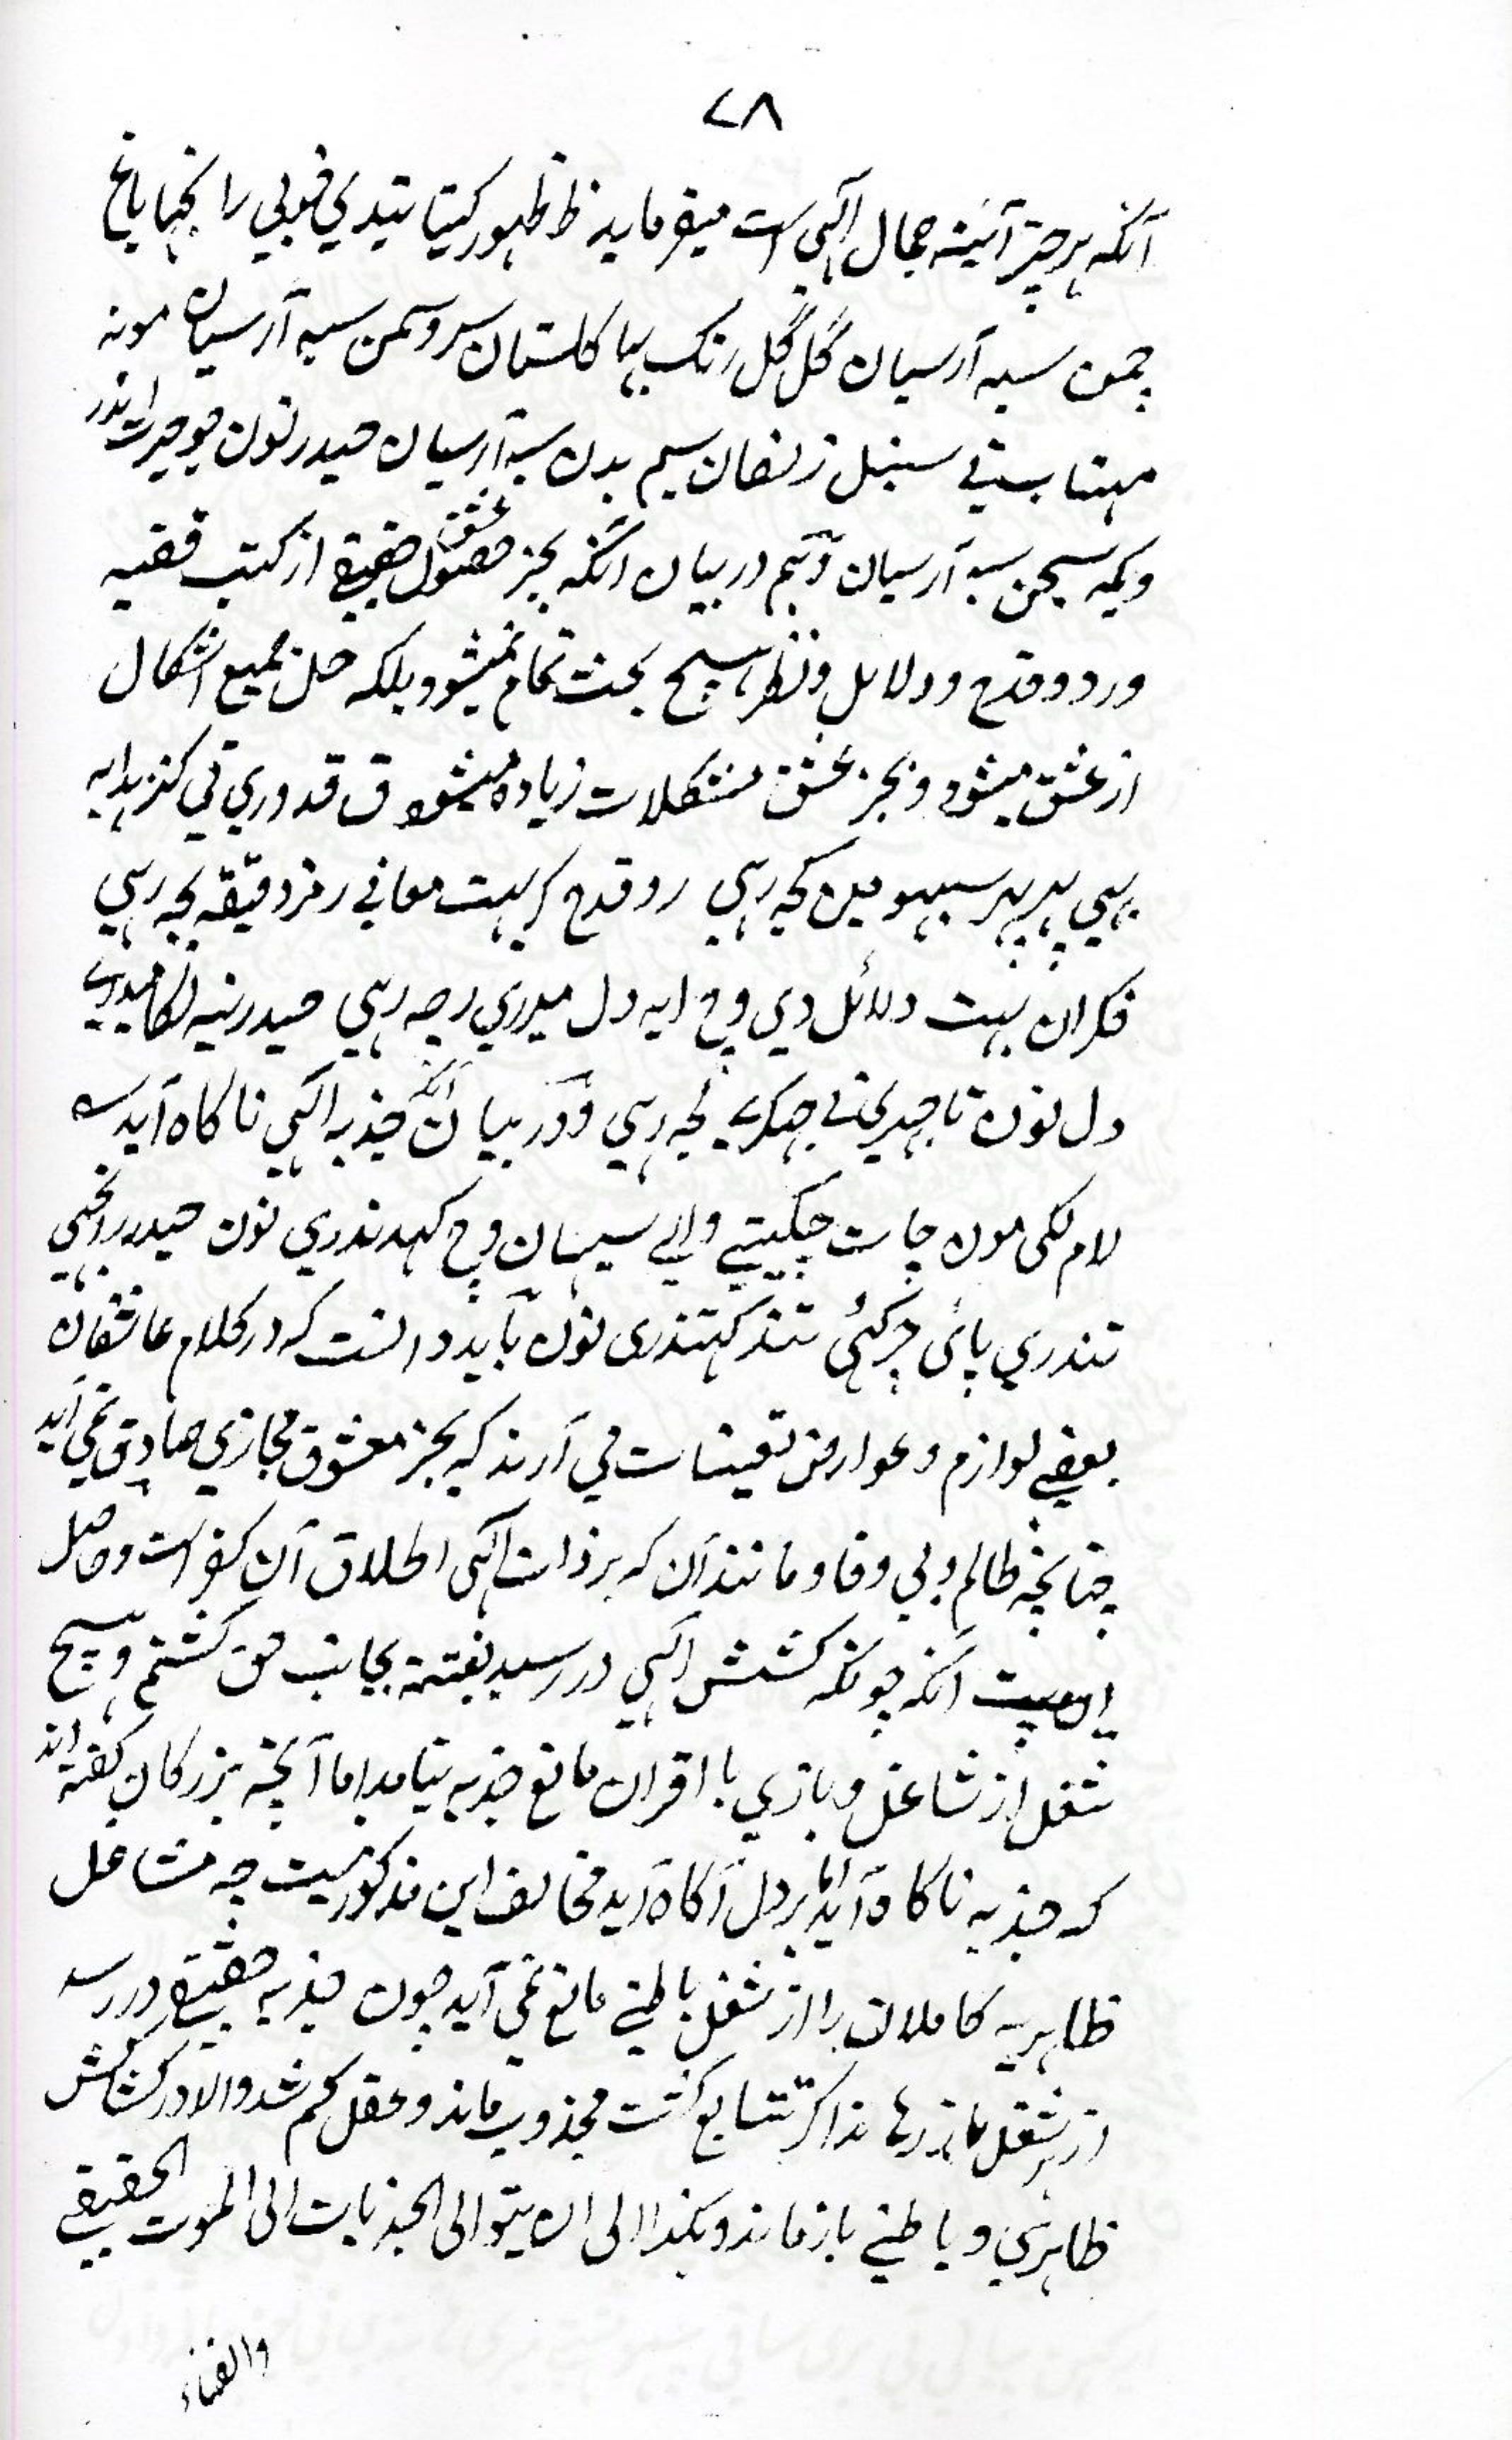 ۷۸
آنکه هرچیز آئینه جمال الهی است میفرماید ظ ظهور کیتا تیدی خوبی را نجها باغ
چمن سبه آرسیان گل گل رنک بها کلستان سرو سمن سبه آرسیان مونه
مهتاب تی سنبل زلفان سیم بدن سبه آرسیان حیدر نون حیرت اندر
ویکه سجن سبه آرسیان و در بیان آنکه بجز حصول عشق حقیقی از کتب فقیه
ورد و قدح و دلایل و نظر هیچ بحث تمام نمیشود بلکه حل جمیع اشکال
از عشق میشود و بجز عشق مشکلات زیاده میشود ق قدوری تی کنز هدایه
بهی پر پر سبهو مین کجه رهی رد و قدح کر بهت معانی رمز دقیقه بجه رهی
فکران بهت دلائل دی وچ ایه دل میدری رجه رهی حیدر نیه لکا میدی
دل نون تا جیدی تی جهکری کجه رهی و در بیان آنکه جذبه الهی ناکاه آید
لام لکی مون چات چکیتی والی سیهان وچ کهدندری نون حیدر رانجهی
تندری پائی چرکئی تند کتندری نون باید دانست که در کلام عاشقان
بعضی لوازم و عوارض تعینات می آرند که بجز معشوق مجازی صادق نمی آید
چنانچه ظالم و بی وفا و مانند آن که بر ذات الهی اطلاق آن کفر است و حاصل
بیت آنکه چونکه کشش الهی در رسید بغتة بجانب حق کشتم و هیچ
شغل از مشاغل و بازی با اقران مانع جذبه نیامد اما آنچه بزرکان کفته اند
که جذبه ناکاه آید اما بر دل آکاه آید مخالف این مذکور نیست چه مشاغل
ظاهریه کاملان را از شغل باطنی مانع نمی آید چون جذبه حقیقی در رسد
از هر شغل باز رهاند اکر تتابع کشت مجذوب ماند و عقل کم شد والا در کشاکش
ظاهری و باطنی باز ماند و هکذا الی ان یتوالی الجذبات الی الموت الحقیقی
والفناء